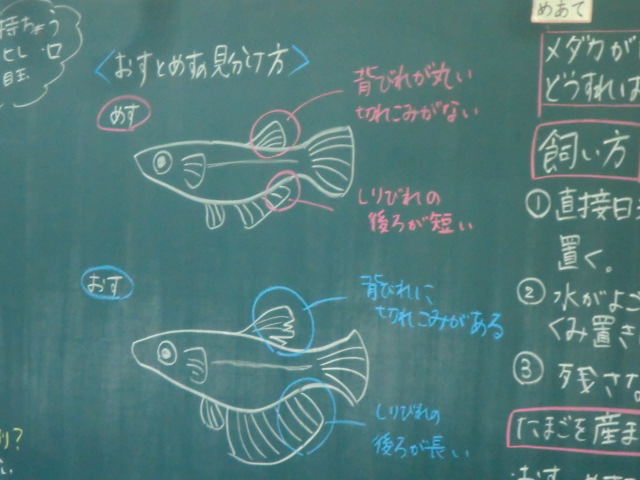 持ちょう
ヒレ・口
目玉
〈おすとめすの見分け方〉
めす
背びれが丸い
切れこみがない
しりびれの
後ろが短い
おす
背びれに
切れこみがある
しりびれの
後ろが長い
めあて
メダカが
どうすれば
飼い方
①直接日
置く。
②水がよご
くみ置き
③残さな
たまごを産ま